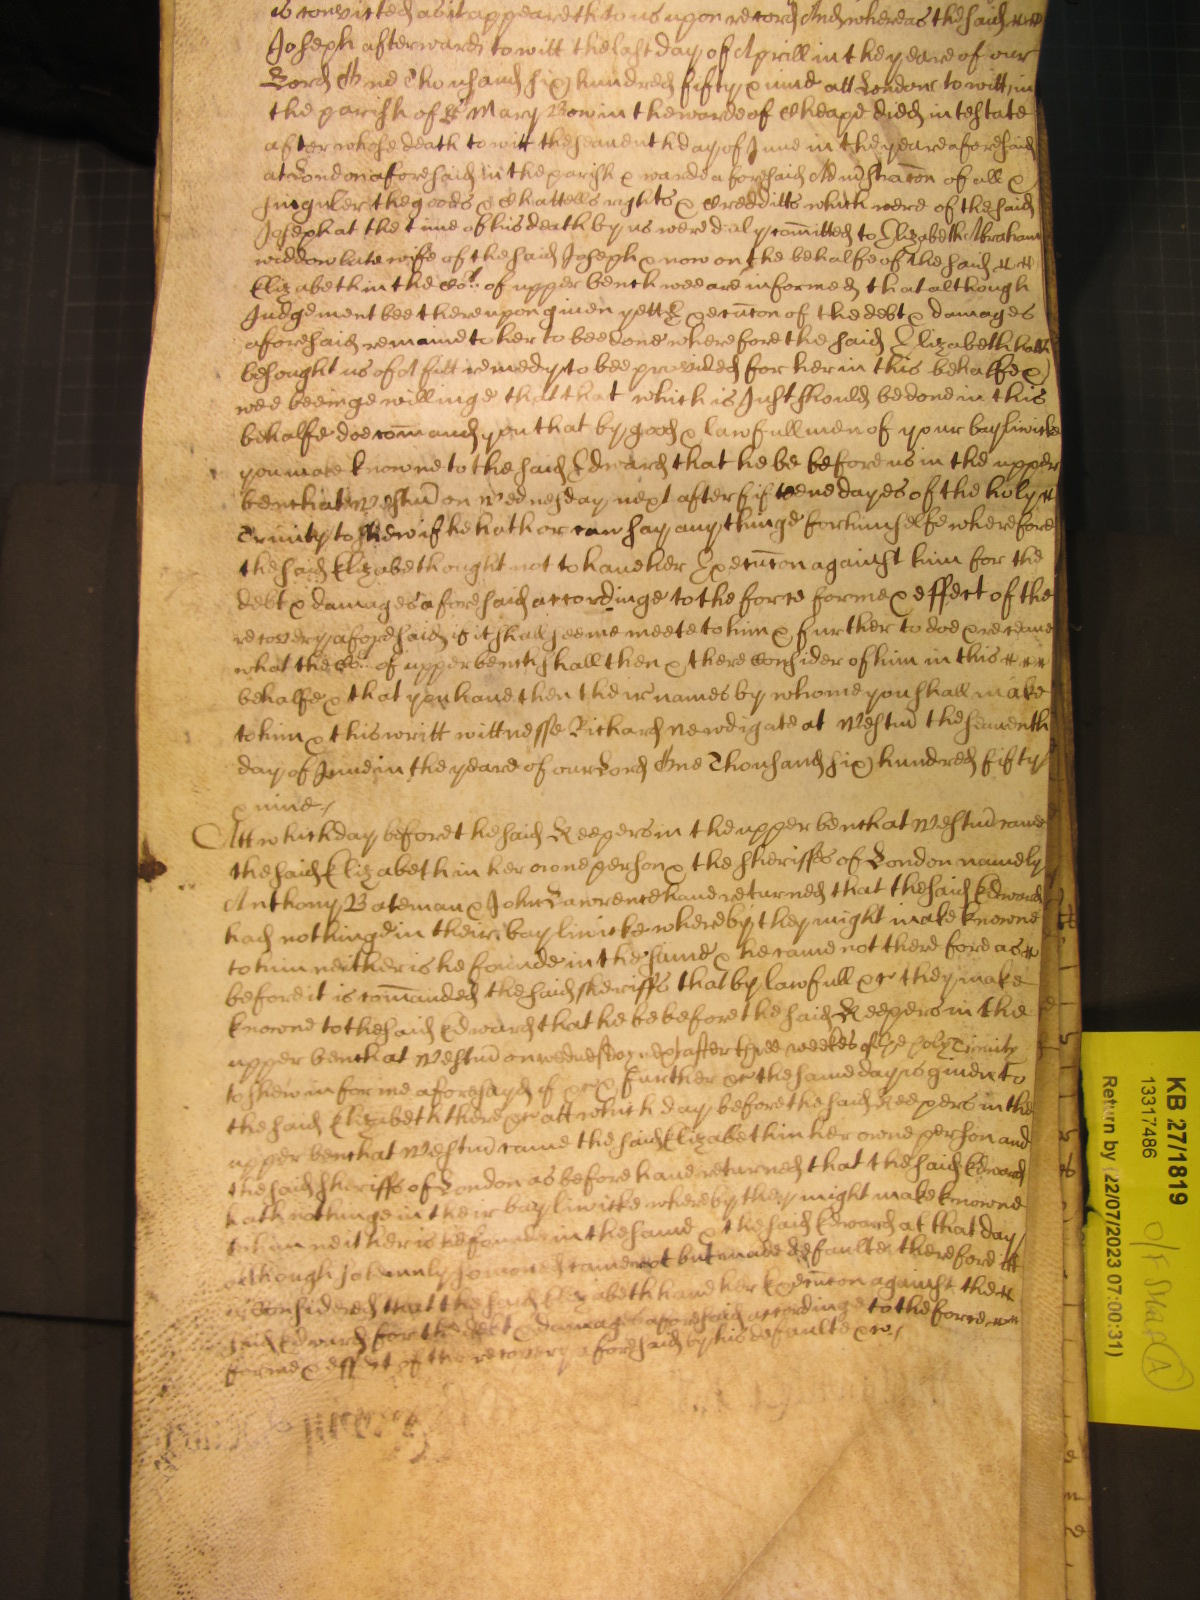 is convicted as it appeareth to us upon record And whereas the said
Joseph afterwards to witt the last day of Aprill in the yeare of our
Lord One Thousand six hundred fifty & nine att London to witt in
the parish of St Mary Bow in the warde of Cheape died intestate
after whose death to witt the seaventh day of June in the yeare aforesaid
at London aforesaid in the parish & warde aforesaid Administracōn of all &
singuler the goods & Chattells rights & Credditts which were of the said
Joseph at the time of his death by us were duly com̄itted to Elizabeth Abraham
widdow late wife of the said Joseph & now on the behalfe of the said
Elizabeth in the Cort of upper bench wee are informed that although
Judgement bee thereupon given yett Execucōn of the debt & damages
aforesaid remaine to her to bee done wherefore the said Elizabeth hath
besought us of A fitt remedy to bee provided for her in this behalfe &
wee beeinge willinge that that which is Just should be done in this
behalfe doe com̄and you that by good & lawfull men of your bayliwicke
you make knowne to the said Edward that he be before us in the upper
bench at Westm̄ on Wednesday next after fifteene dayes of the holy
Trinity to shew if he hath or can say any thinge for himselfe wherefore
the said Elizabeth ought not to have her Execucōn against him for the
debt & damages aforesaid accordinge to the force forme & effect of the
recovery aforesaid if it shall seeme meete to him & further to doe & receave
what the Cort of upper bench shall then & there Consider of him in this
behalfe & that you have then there names by whome you shall make
to him & this writt wittnesse Richard Newdigate at Westm̄ the seaventh
day of June in the yeare of our Lord One Thousand six hundred fifty
& nine /
Att which day before the said Keepers in the upper bench at Westm̄ came
the said Elizabeth in her owne person & the sheriffs of London namely
Anthony Bateman & John Lawrence have returned that the said Edward
had nothinge in their bayliwicke whereby they might make knowne
to him neither is he founde in the same & he came not therefore as
before it is com̄anded the said sheriffs that by lawfull &c they make
knowne to the said Edward that he be before the said Keepers in the
upper bench at Westm̄ on wednesday next after three weekes of the holy Trinity
to shew in forme aforesayd if &c & further &c the same day is given to
the said Elizabeth there &c att which day before the said Keepers in the
upper bench at Westm̄ came the said Elizabeth in her owne person and
the said sheriffs of London as before have returned that the said Edward
hath nothinge in their bayliwicke whereby they might make knowne
to him neither is he founde in the same & the said Edward at that day
although solemnly somoned came not but made defaulte therefore itt
is Considered that the said Elizabeth have her Execucōn against the
said Edward for the debt & damages aforesaid accordinge to the force
forme & effect of the recovery aforesaid by his defaulte &c /
KB 27/1819
13317486
Return by (22/07/2023 07:00:31)
A